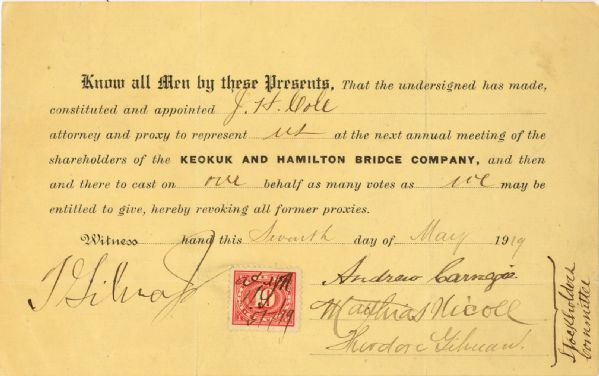 Know all Men by these Presents, That the undersigned has made,
constituted and appointed J. H. Cole
attorney and proxy to represent us at the next annual meeting of the
shareholders of the KEOKUK AND HAMILTON BRIDGE COMPANY, and then
and there to cast on our behalf as many votes as we may be
entitled to give, hereby revoking all former proxies.
Witness hand this Seventh day of May 1919
Andrew Carnegie
Matthias Nicoll
Theodore Gilman.
Stockholders
Committee